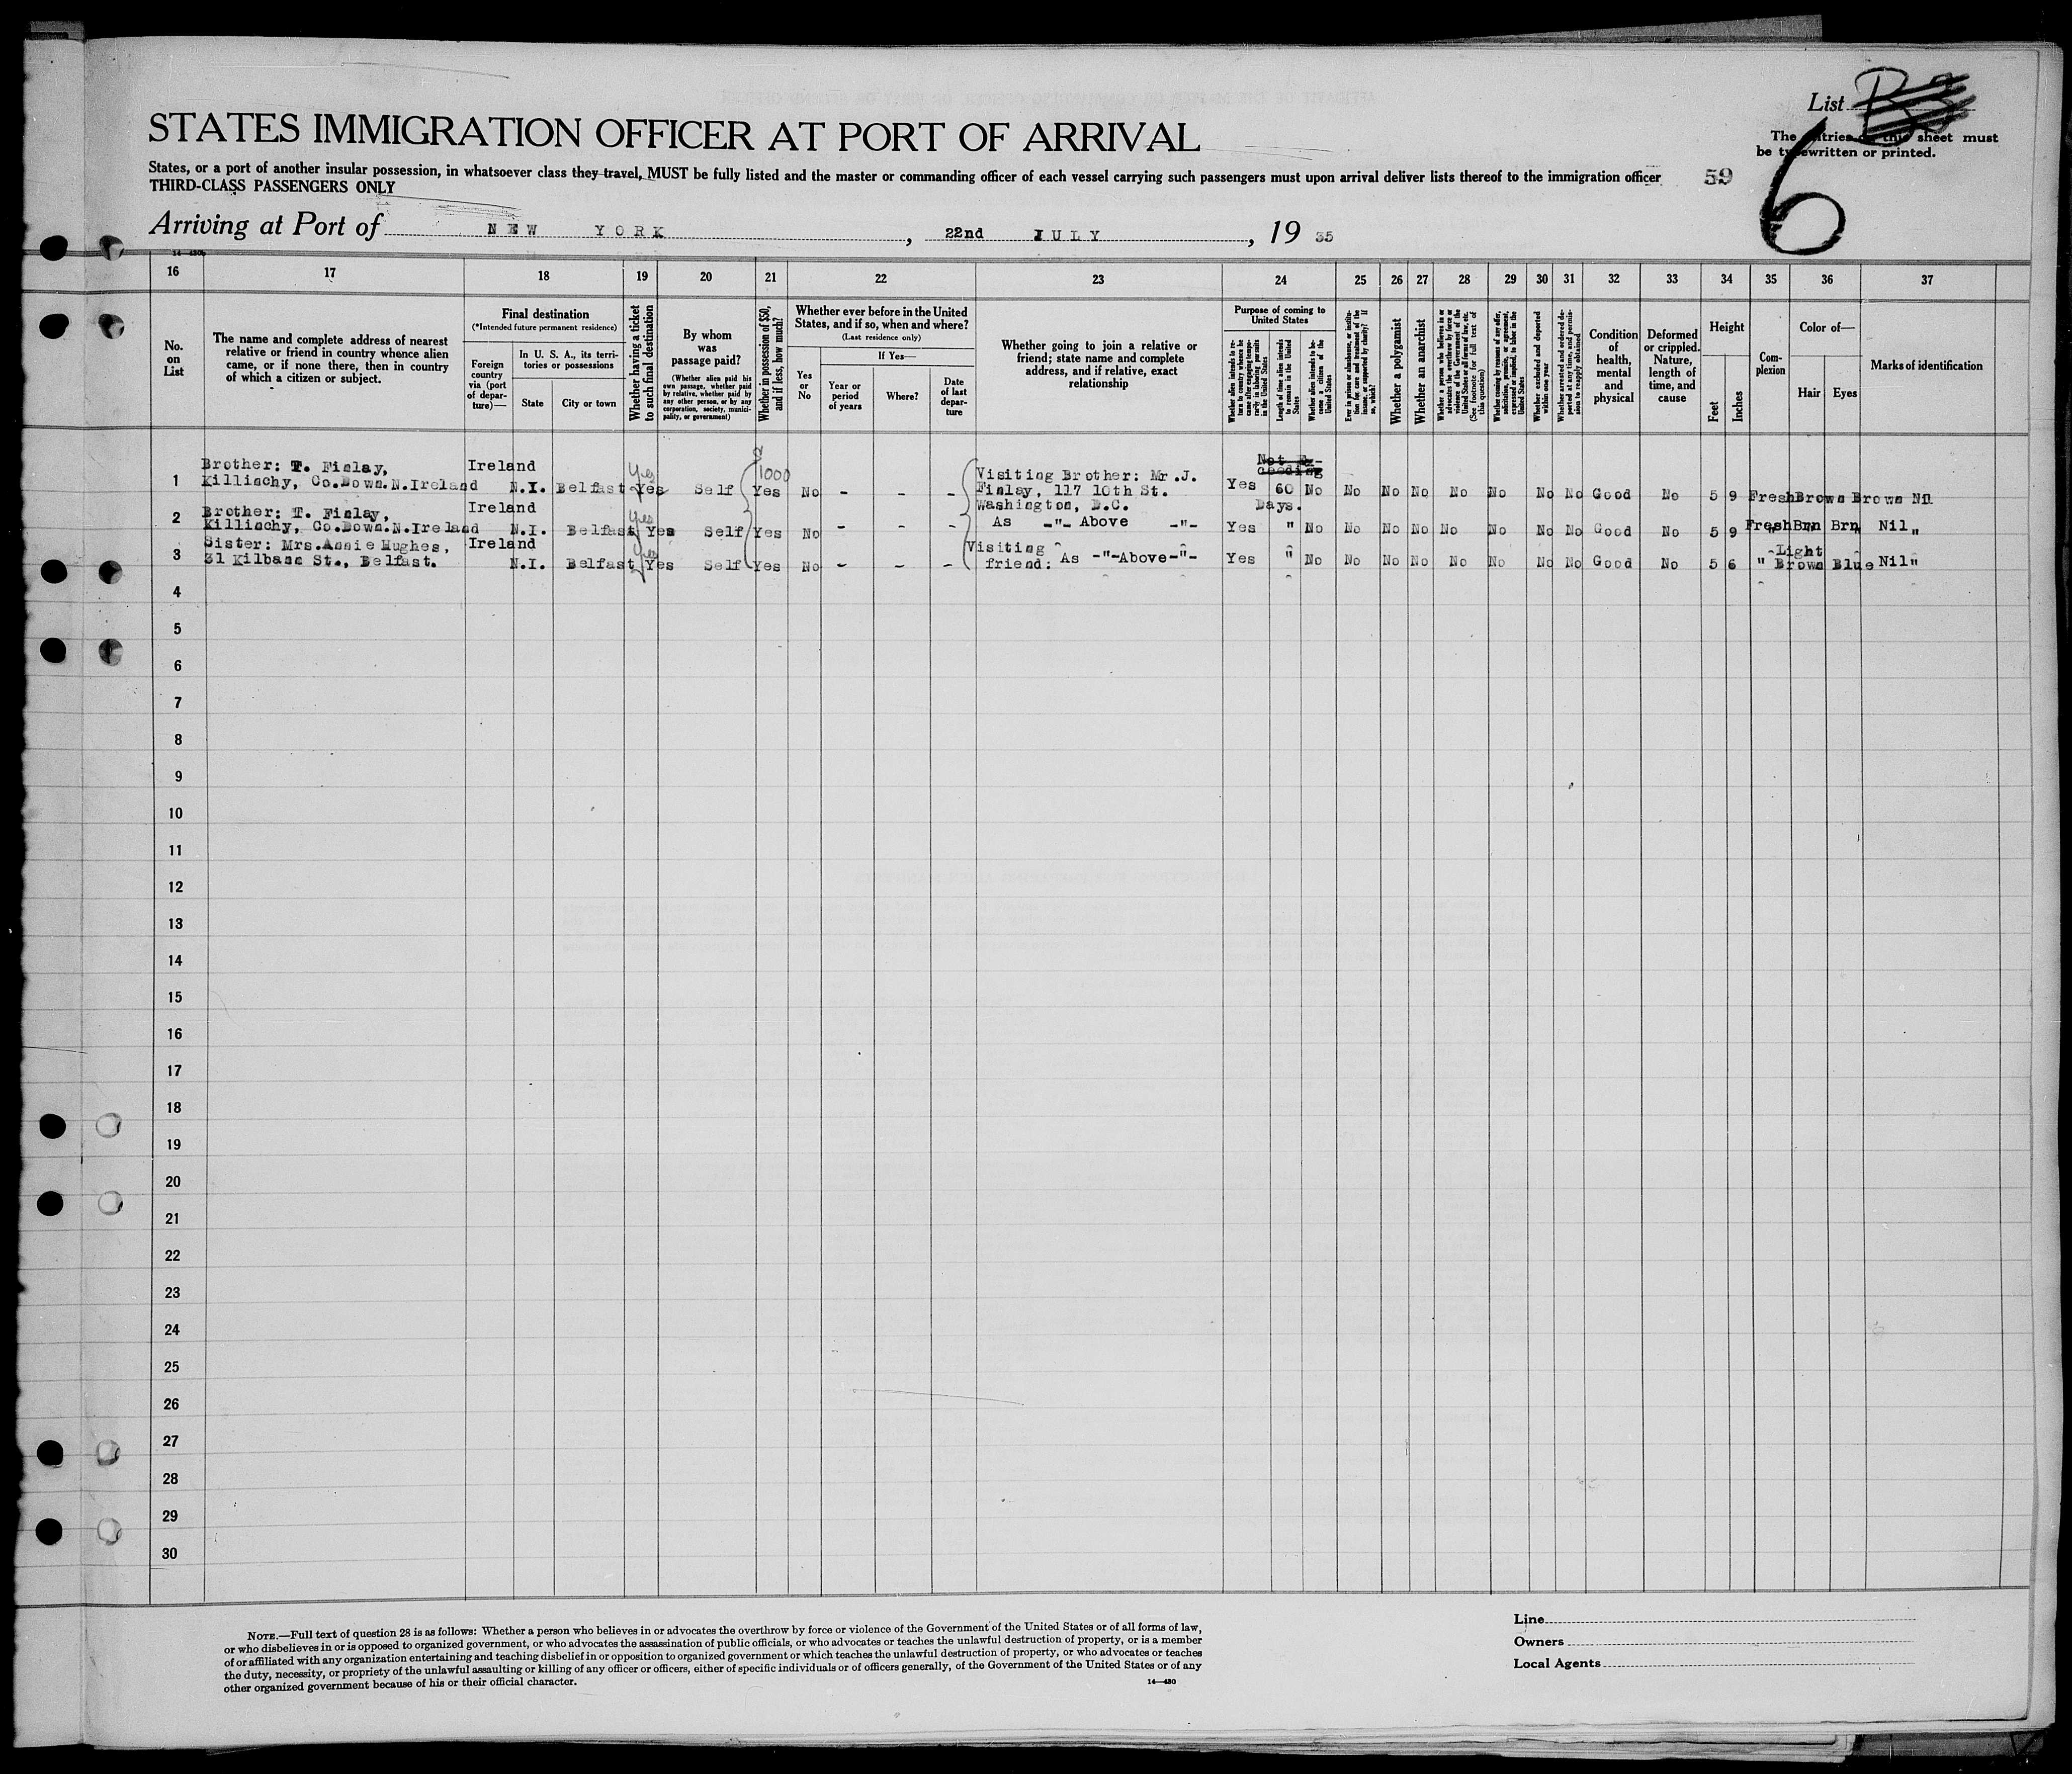 List B3
The entries on this sheet must
be typewritten or printed.
6
STATES IMMIGRATION OFFICER AT PORT OF ARRIVAL
States, or a port of another insular possession, in whatsoever class they travel, MUST be fully listed and the master or commanding officer of each vessel carrying such passengers must upon arrival deliver lists thereof to the immigration officer
59
THIRD-CLASS PASSENGERS ONLY
Arriving at Port of NEW YORK, 22nd JULY, 19 35
14—430
16 17 18 19 20 21 22 23 24 25 26 27 28 29 30 31 32 33 34 35 36 37
No.
on
List
The name and complete address of nearest
relative or friend in country whence alien
came, or if none there, then in country
of which a citizen or subject.
Final destination
(*Intended future permanent residence)
Foreign
country
via (port
of depar-
ture)—
In U. S. A., its terri-
tories or possessions
State
City or town
Whether having a ticket
to such final destination
By whom
was
passage paid?
(Whether alien paid his
own passage, whether paid
by relative, whether paid by
any other person, or by any
corporation, society, munici-
pality, or government)
Whether in possession of $50,
and if less, how much?
Whether ever before in the United
States, and if so, when and where?
(Last residence only)
Yes
or
No
If Yes—
Year or
period
of years
Where?
Date
of last
depar-
ture
Whether going to join a relative or
friend; state name and complete
address, and if relative, exact
relationship
Purpose of coming to
United States
Whether alien intends to re-
turn to country whence he
came after engaging tempo-
rarily in laboring pursuits
in the United States
Length of time alien intends
to remain in the United
States
Whether alien intends to be-
come a citizen of the
United States
Ever in prison or almshouse, or institu-
tion for care and treatment of the
insane, or supported by charity? If
so, which?
Whether a polygamist
Whether an anarchist
Whether a person who believes in or
advocates the overthrow by force or
violence of the Government of the
United States or all forms of law, etc.
(See footnote for full text of
this question)
Whether coming by reasons of any offer,
solicitation, promise, or agreement,
expressed or implied, to labor in the
United States
Whether excluded and deported
within one year
Whether arrested and ordered de-
ported at any time, and permis-
sion to reapply obtained
Condition
of
health,
mental
and
physical
Deformed
or crippled.
Nature,
length of
time, and
cause
Height
Feet
Inches
Com-
plexion
Color of—
Hair
Eyes
Marks of identification
Brother: T. Finlay, Ireland Yes $1000 Visiting Brother: Mr .J. Not Ex-
ceeding
1 Killinchy, Co.Down.N.Ireland N.I. Belfast Yes Self Yes No - - - Finlay, 117 10th St. Yes 60 No No No No No No No No Good No 5 9 Fresh Brown Brown Nil
Ireland Washington, D.C. Days.
2 Brother: T. Finlay, Yes
Killinchy, Co.Down.N.Ireland N.I. Belfast Yes Self Yes No - - - As -"- Above -"- Yes " No No No No No No No No Good No 5 9 Fresh Brn Brn Nil "
Sister: Mrs.Annie Hughes, Ireland Yes Visiting Light
3 31 Kilbann St., Belfast. N.I. Belfast Yes Self Yes No - - - friend: As -"-Above-"- Yes " No No No No No No No No Good No 5 6 " Brown Blue Nil "
4
5
6
7
8
9
10
11
12
13
14
15
16
17
18
19
20
21
22
23
24
25
26
27
28
29
30
NOTE.—Full text of question 28 is as follows: Whether a person who believes in or advocates the overthrow by force or violence of the Government of the United States or of all forms of law,
or who disbelieves in or is opposed to organized government, or who advocates the assassination of public officials, or who advocates or teaches the unlawful destruction of property, or is a member
of or affiliated with any organization entertaining and teaching disbelief in or opposition to organized government or which teaches the unlawful destruction of property, or who advocates or teaches
the duty, necessity, or propriety of the unlawful assaulting or killing of any officer or officers, either of specific individuals or of officers generally, of the Government of the United States or of any
other organized government because of his or their official character.
14—430
Line
Owners
Local Agents